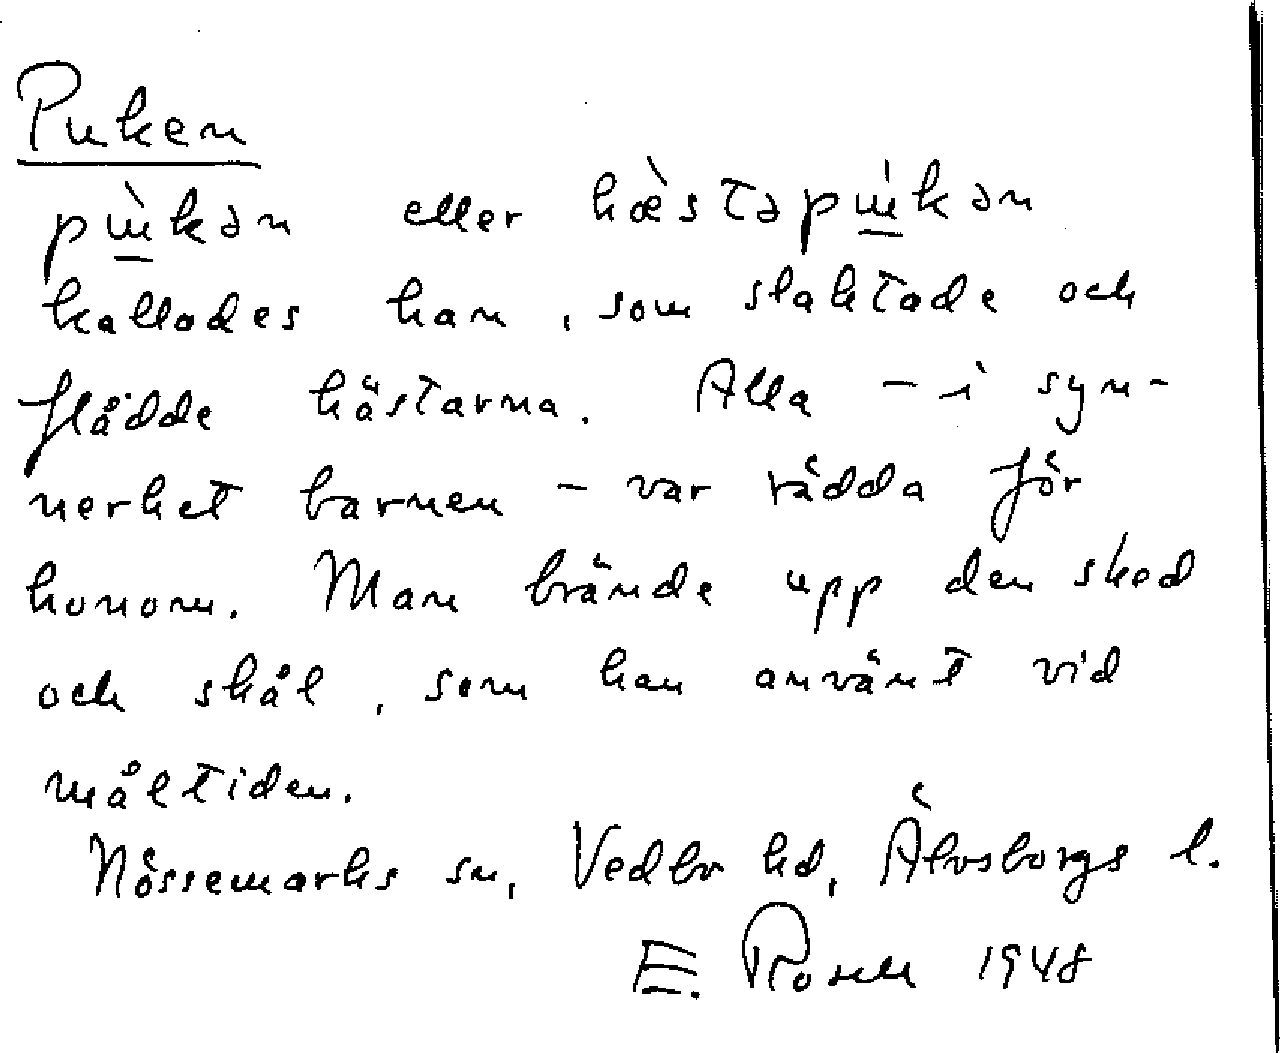 Puken
pɯ̱̀kən eller hæ̀stəpɯ̱̀kən
kallades han, som slaktade och
flådde hästarna. Alla – i syn-
nerhet barnen – var rädda för
honom. Man brände upp den sked
och skål, som han använt vid
måltiden.
Nössemarks sn, Vedbo hd, Älvsborgs l.
E. Rosell 1948